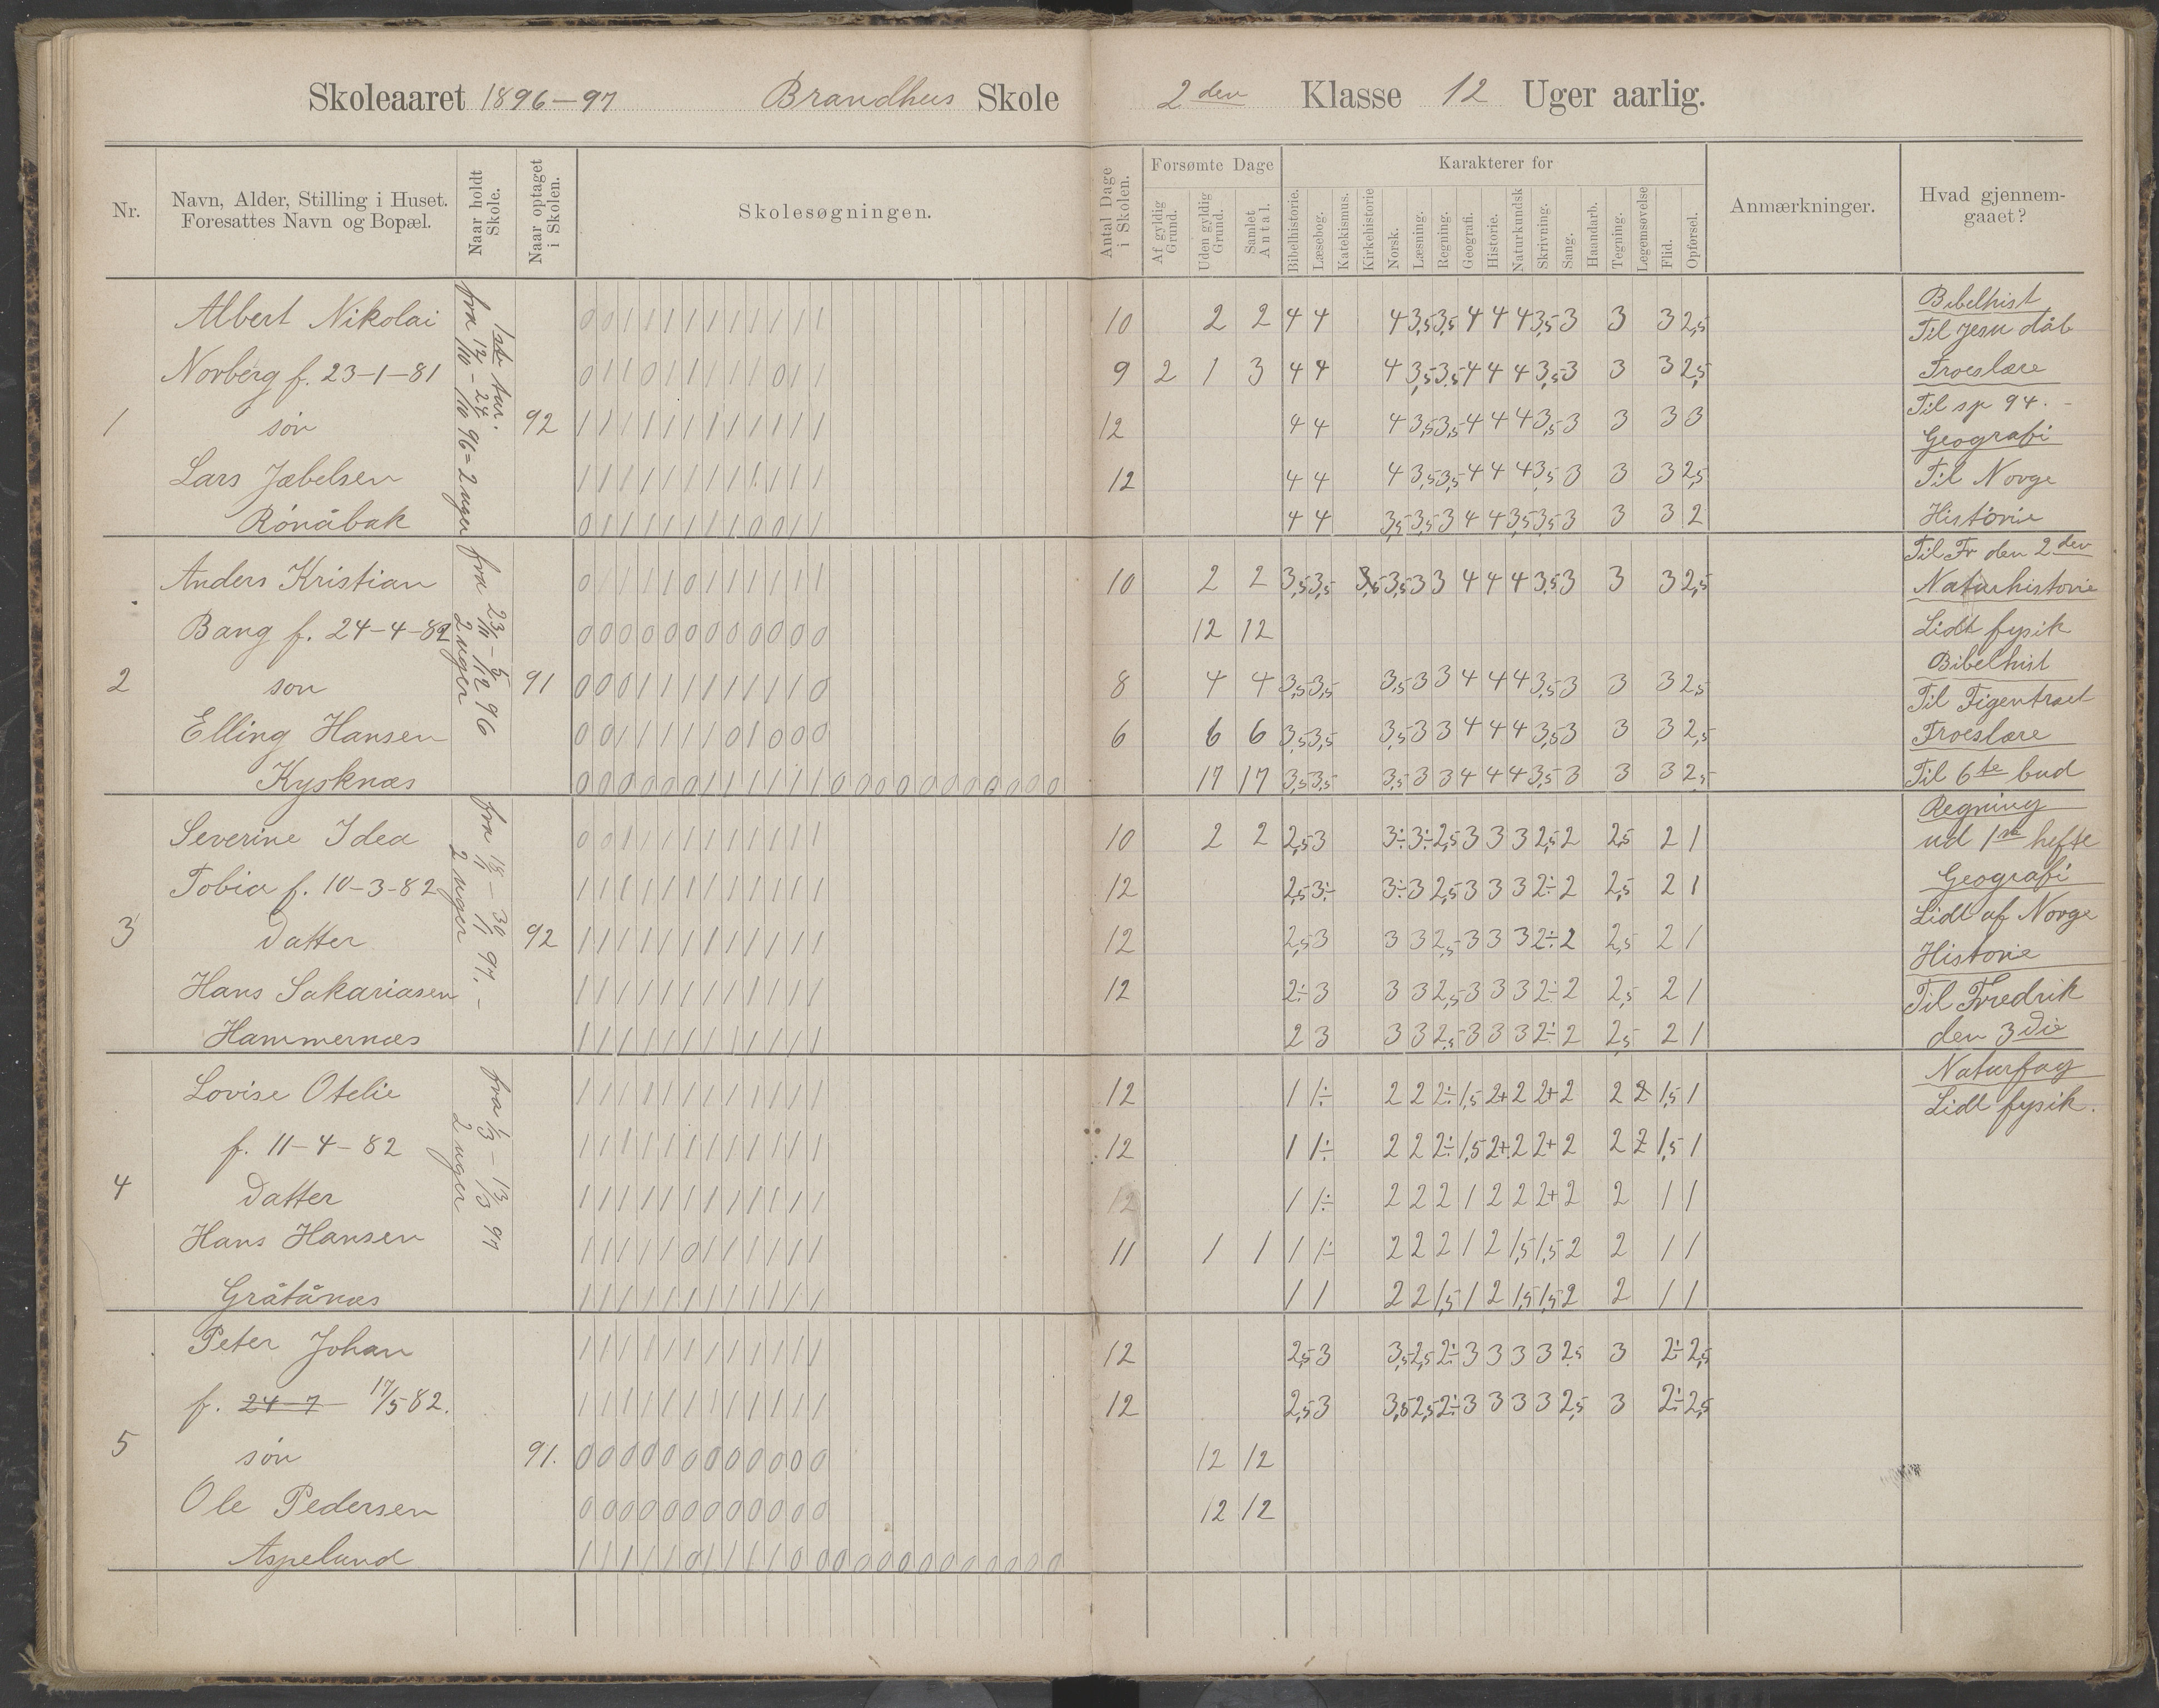 Skoleaaret 1896-97 Brandhus Skole 2den Klasse 12 Uger aarlig.
Nr.
Navn, Alder, Stilling i Huset.
Foresattes Navn og Bopæl.
Naar holdt
Skole.
Naar optaget
i Skolen.
Skolesøgningen.
Antal Dage
i Skolen.
Forsømte Dage
Af gyldig
Grund.
Uden gyldig
Grund.
Samlet
Antal.
Karakterer for
Bibelhistorie.
Læsebog.
Katekismus.
Kirkehistorie
Norsk.
Læsning.
Regning.
Geografi.
Historie.
Naturkundsk
Skrivning.
Sang.
Haandarb.
Tegning.
Legemsøvelse
Flid.
Opførsel.
Anmærkninger.
Hvad gjennem-
gaaet?
1
Albert Nikolai
Norberg f. 23-1-81
søn
Lars Jæbelsen
Rönåbak
1ste tur.
fra 12/10 - 24/10 96 = 2 uger
92
0 0 1 1 1 1 1 1 1 1 1 1 10 2 2 4 4 4 3,5 3,5 4 4 4 3,5 3 3 3 2,5
0 1 1 0 1 1 1 1 1 0 1 1 9 2 1 3 4 4 4 3,5 3,5 4 4 4 3,5 3 3 3 2,5
1 1 1 1 1 1 1 1 1 1 1 1 12 4 4 4 3,5 3,5 4 4 4 3,5 3 3 3 3
1 1 1 1 1 1 1 1 1 1 1 1 12 4 4 4 3,5 3,5 4 4 4 3,5 3 3 3 2,5
0 1 1 1 1 1 1 1 0 0 1 1 4 4 3,5 3,5 3 4 4 3,5 3,5 3 3 3 2
2
Anders Kristian
Bang f. 24-4-82
søn
Elling Hansen
Kysknæs
fra 23/11 - 5/12 96
2 uger
91
0 1 1 1 1 0 1 1 1 1 1 1 10 2 2 3,5 3,5 3,5 3,5 3 3 4 4 4 3,5 3 3 3 2,5
0 0 0 0 0 0 0 0 0 0 0 0 12 12
0 0 0 1 1 1 1 1 1 1 1 0 8 4 4 3,5 3,5 3,5 3 3 4 4 4 3,5 3 3 3 2,5
0 0 1 1 1 1 1 0 1 0 0 0 6 6 6 3,5 3,5 3,5 3 3 4 4 4 3,5 3 3 3 2,5
0 0 0 0 0 0 1 1 1 1 1 1 0 0 0 0 0 0 0 0 0 0 0 17 17 3,5 3,5 3,5 3 3 4 4 4 3,5 3 3 3 2,5
3
Severine Idea
Tobia f. 10-3-82
Datter
Hans Sakariasen
Hammernæs
2 uger
92
0 0 1 1 1 1 1 1 1 1 1 1 10 2 2 2,5 3 3÷ 3÷ 2,5 3 3 3 2,5 2 2,5 2 1
1 1 1 1 1 1 1 1 1 1 1 1 12 2,5 3÷ 3÷ 3 2,5 3 3 3 2÷ 2 2,5 2 1
1 1 1 1 1 1 1 1 1 1 1 1 12 2,5 3 3 3 2,5 3 3 3 2÷ 2 2,5 2 1
1 1 1 1 1 1 1 1 1 1 1 1 12 2÷ 3 3 3 2,5 3 3 3 2÷ 2 2,5 2 1
1 1 1 1 1 1 1 1 1 1 1 1 2 3 3 3 2,5 3 3 3 2÷ 2 2,5 2 1
4
Lovise Otelie
f. 11-4-82
Datter
Hans Hansen
Gråtånæs
fra 1/3 - 13/3 97
2 uger
1 1 1 1 1 1 1 1 1 1 1 1 12 1 1÷ 2 2 2÷ 1,5 2+ 2 2+ 2 2 2 1,5 1
1 1 1 1 1 1 1 1 1 1 1 1 12 1 1÷ 2 2 2÷ 1,5 2+ 2 2+ 2 2 2 1,5 1
1 1 1 1 1 1 1 1 1 1 1 1 12 1 1÷ 2 2 2 1 2 2 2+ 2 2 1 1
1 1 1 1 1 0 1 1 1 1 1 1 11 1 1 1 1÷ 2 2 2 1 2 1,5 1,5 2 2 1 1
1 1 1 1 1 1 1 1 1 1 1 1 1 1 2 2 1,5 1 2 1,5 1,5 2 2 1 1
5
Peter Johan
f. 24-7 17/5 82.
søn
Ole Pedersen
Aspelund
91.
1 1 1 1 1 1 1 1 1 1 1 1 12 2,5 3 3,5 2,5 2÷ 3 3 3 3 2,5 3 2÷ 2,5
1 1 1 1 1 1 1 1 1 1 1 1 12 2,5 3 3,5 2,5 2÷ 3 3 3 3 2,5 3 2÷ 2,5
0 0 0 0 0 0 0 0 0 0 0 0 12 12
0 0 0 0 0 0 0 0 0 0 0 0 12 12
1 1 1 1 1 0 1 1 1 1 0 0 0 0 0 0 0 0 0 0 0 0 0
Bibelhist
Til Jesu dåb
Troeslære
Til sp 94.-
Geografi
Til Norge
Historie
Til Fr den 2den
Naturhistorie
Lidt fysik
Bibelhist
Til Figentræet
Troeslære
Til 6te bud
Regning
ud 1ste hefte
Geografi
Lidt af Norge
Historie
Til Fredrik
den 3die
Naturfag
Lidt fysik.